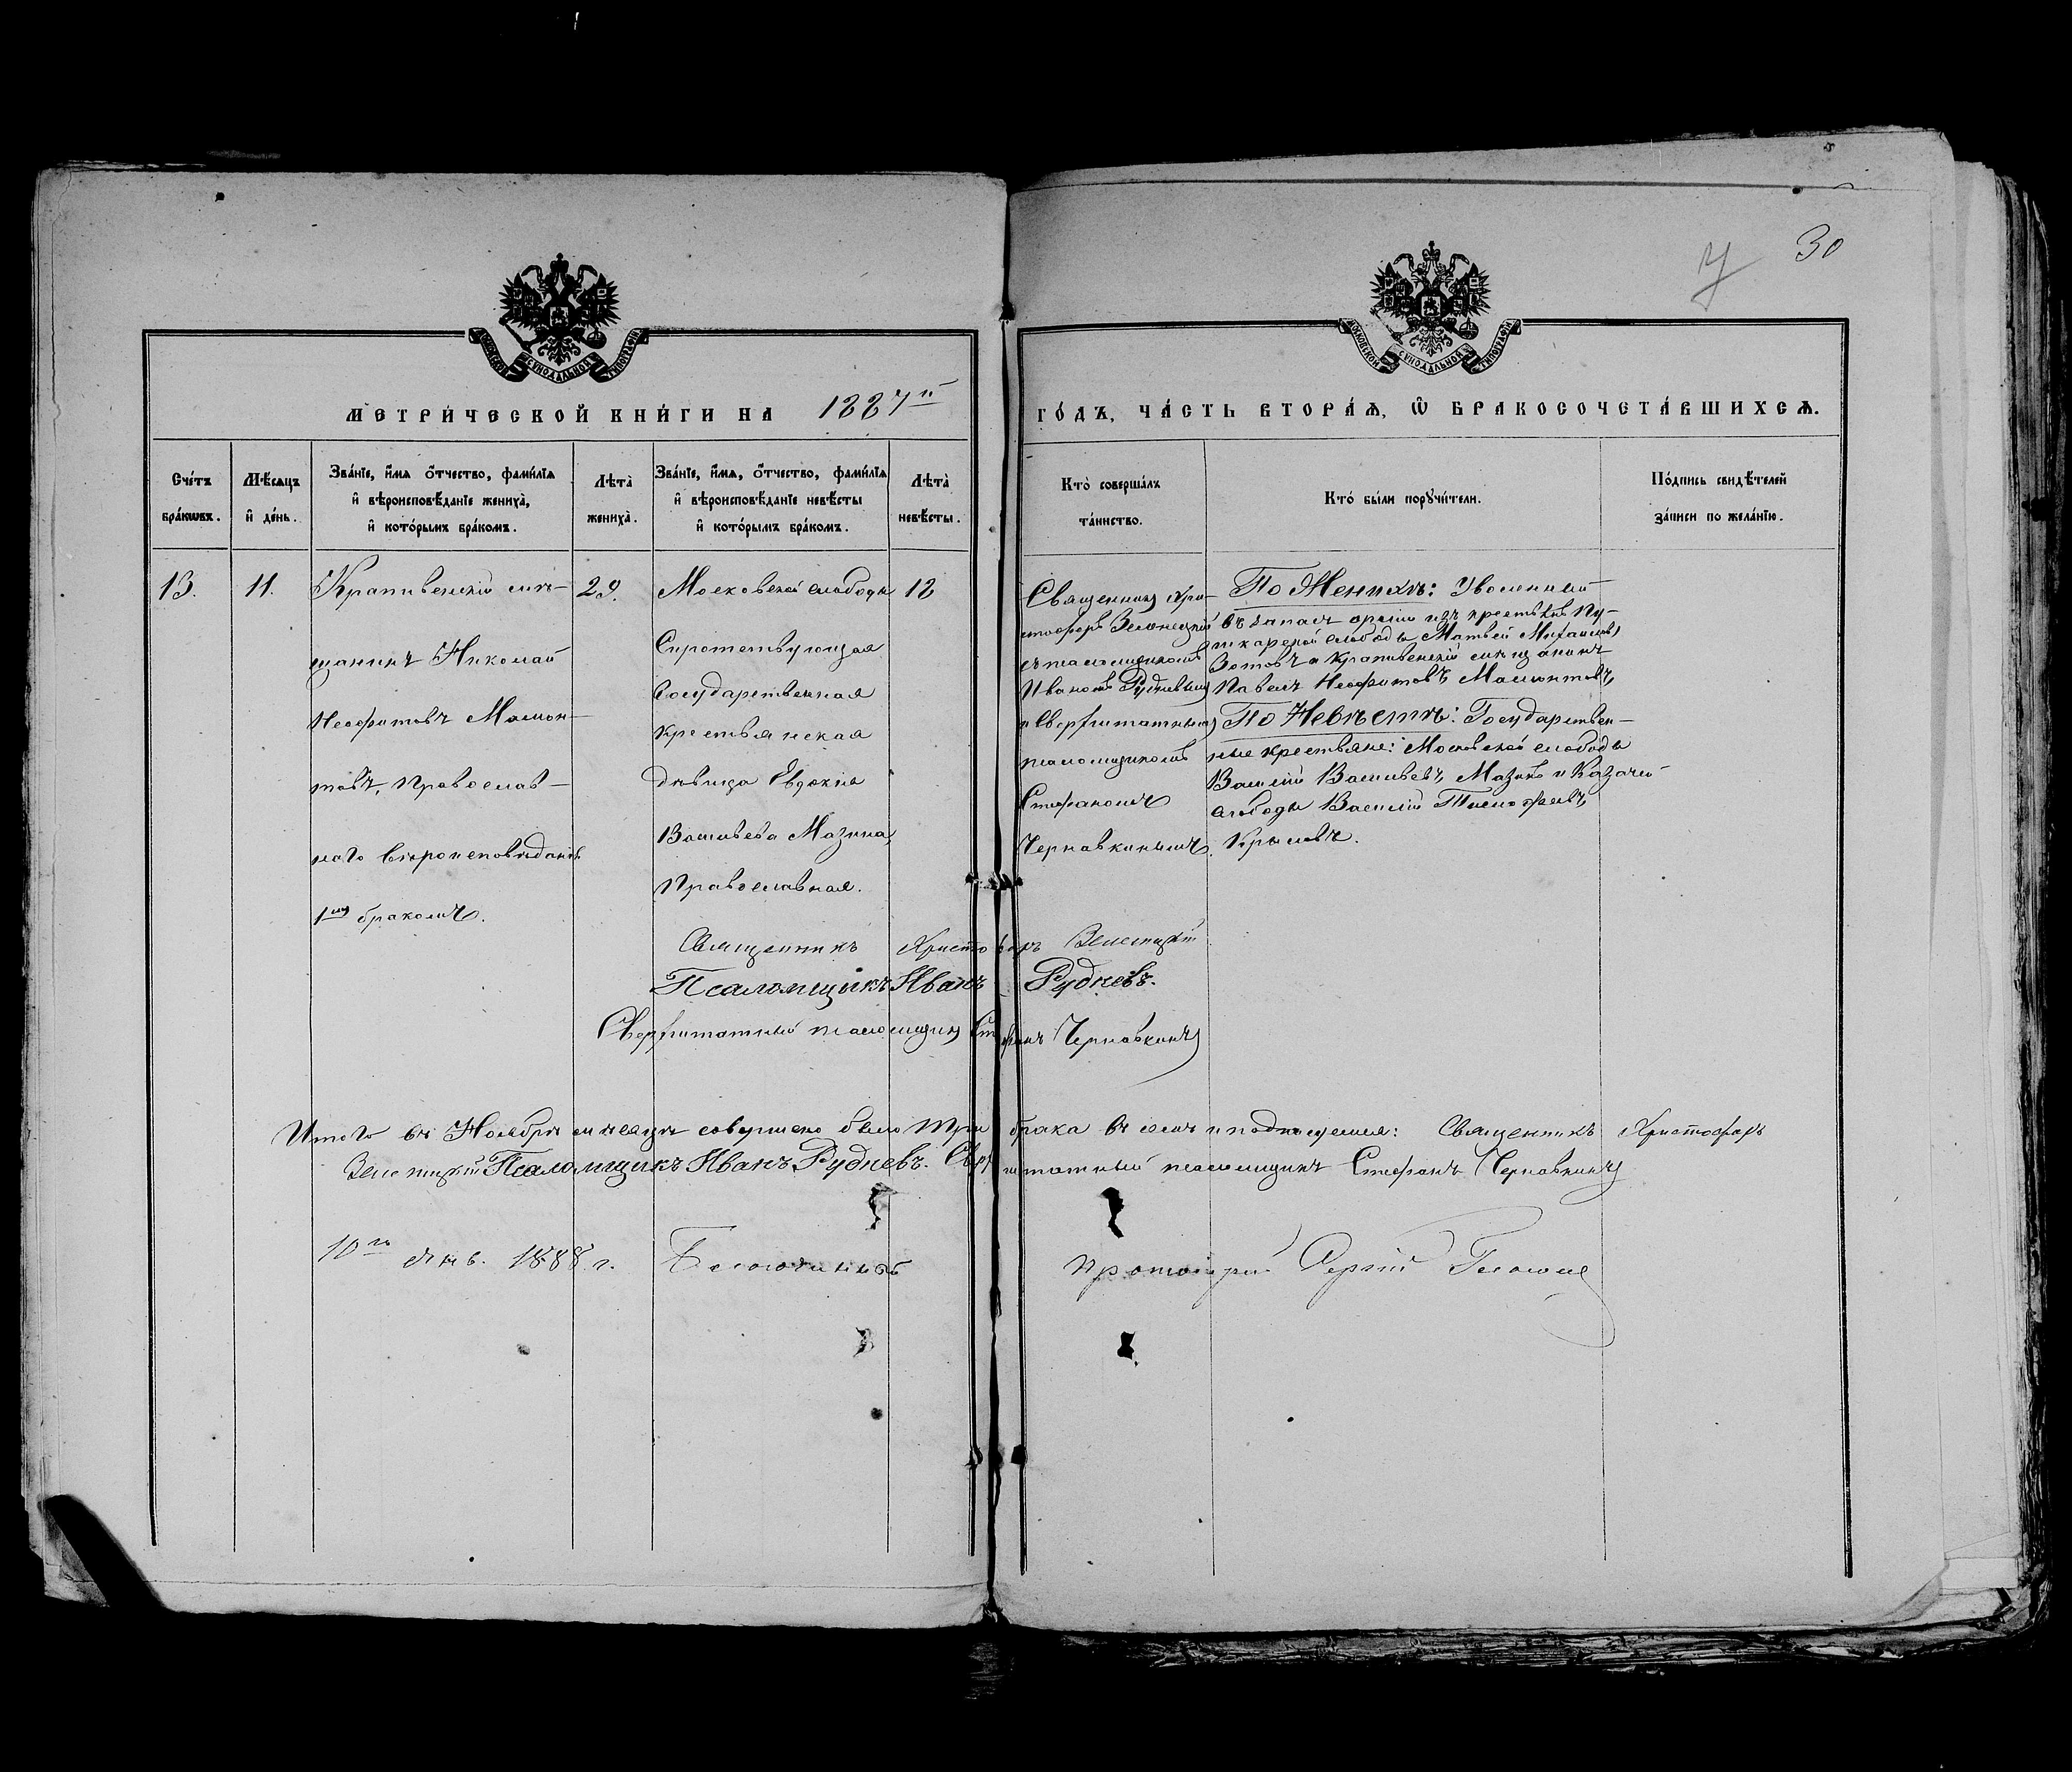 30
У
МОСКОВСКОЙ СѴНОДАЛЬНОЙ ТИПОГРАФІИ
МОСКОВСКОЙ СѴНОДАЛЬНОЙ ТИПОГРАФІИ
МЕТРИ́ЧЕСКОЙ КНИ́ГИ НА 1887й
ГО́ДЪ, ЧА́СТЬ ВТОРА́Я, Ѡ҆ БРАКОСОЧЕТА́ВШИХСЯ.
Сче́тъ
бра́кѡвъ.
Мѣ́сяцъ
и҆ де́нь.
Зва́нїе, и҆́мя ѻ҆́тчество, фами́лїя
и҆ вѣроисповѣ́данїе жениха̀,
и҆ кото́рымъ бра́комъ.
Лѣта̀
жениха̀.
Зва́нїе, и҆́мя, ѻ҆́тчество, фами́лїя
и҆ вѣроисповѣ́данїе невѣ́сты
и҆ кото́рымъ бра́комъ.
Лѣта̀
невѣ́сты.
Кто̀ соверша́лъ
та́инство.
Кто́ бы́ли порꙋчи́тели.
По́дпись свидѣ́телей
за́писи по жела́нїю.
13.
11.
Крапивенскій мѣ-
щанинъ Николай
Неофитовъ Мамон-
товъ, православ-
наго вѣроисповѣданія
1мъ бракомъ.
29.
Московской слободы
Сиротствующая
Государственная
крестьянская
дѣвица Евдокія
Васильева Мазина,
Православная.
18
Священникъ Хри-
стофоръ Зеленецкій
съ псаломщикомъ
Иваномъ Рудневымъ
и Сверхштатнымъ
псаломщикомъ
Стефаномъ
Чернавкинымъ.
По Женихѣ: Уволенный
въ запасъ арміи изъ крестьянъ Пу-
шкарской слободы Матвей Михаиловъ
Зотовъ и Крапивенскій мѣщанинъ
Павелъ Неофитовъ Мамонтовъ,
По Невѣстѣ: Государствен-
ные крестьяне: Московской слободы
Василій Васильевъ Мазинъ и Казачей
слободы Василій Тимофеевъ
Крыловъ.
Священникъ Христофоръ Зеленецкій
Псаломщикъ Иванъ Рудневъ.
Сверхштатный псаломщикъ Стефанъ Чернавкинъ
Итого въ Ноябрѣ мѣсяцѣ совершено было три брака въ семъ и подписуемся: Священникъ Христофоръ
Зеленецкій Псаломщикъ Иванъ Рудневъ. Сверхштатный псаломщикъ Стефанъ Чернавкинъ
10го янв. 1888 г. Благочинный Протоіерей Сергій